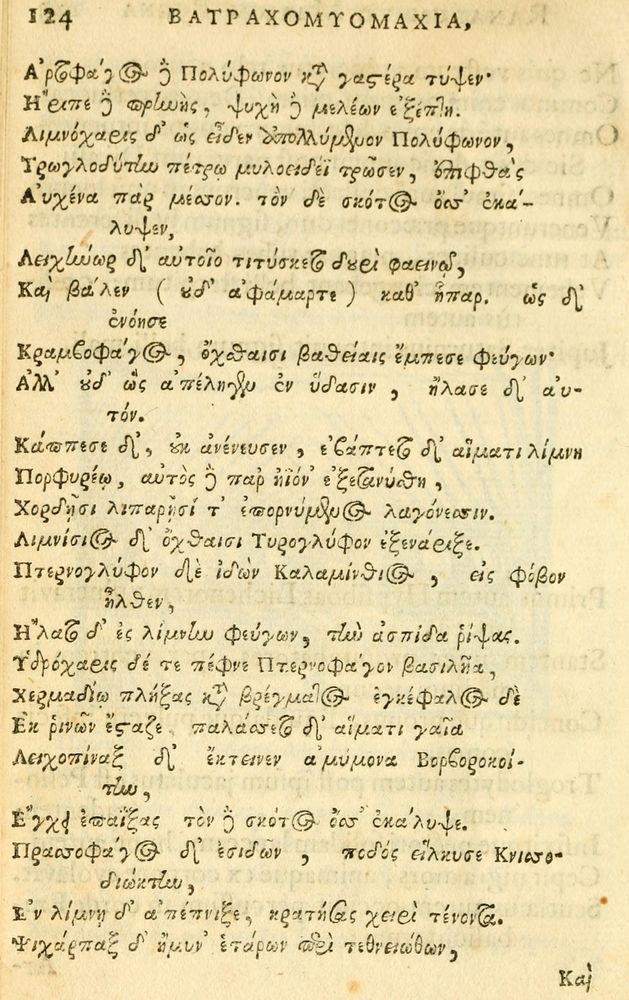 124 ΒΑΤΡΑΧΟΜΥΟΜΑΧΙΑ,
Ἀρτοφάγος δὲ Πολύφωνον κατὰ γαστέρα τύψεν·
Ἤριπε δὲ πρηνὴς, ψυχὴ δὲ μελέων ἐξέπτη.
Λιμνόχαρις δ' ὡς εἶδεν ἀπολλύμενον Πολύφωνον,
Τρωγλοδύτην πέτρῳ μυλοειδέϊ τρῶσεν, ἐπιφθὰς
Αὐχένα πὰρ μέσσον. τὸν δὲ σκότος ὄσσ' ἐκά-
λυψεν,
Λειχήνωρ δ' αὐτοῖο τιτύσκετο δουρὶ φαεινῷ,
Καὶ βάλεν (οὐδ' ἀφάμαρτε) καθ' ἧπαρ. ὡς δ'
ἐνόησε
Κραμβοφάγος, ὄχθαισι βαθείαις ἔμπεσε φεύγων·
Ἀλλ' οὐδ' ὣς ἀπέληγεν ἐν ὕδασιν, ἤλασε δ' αὐ-
τόν.
Κάππεσε δ', οὐκ ἀνένευσεν, ἐβάπτετο δ' αἵματι λίμνη
Πορφυρέῳ, αὐτὸς δὲ παρ' ἠϊόν' ἐξετανύσθη,
Χορδῇσι λιπαρῇσί τ' ἐπορνύμενος λαγόνεσσιν.
Λιμνίσιος δ' ὄχθαισι Τυρογλύφον ἐξενάριξε.
Πτερνογλύφον δὲ ἰδὼν Καλαμίνθιος, εἰς φόβον
ἦλθεν,
Ἥλατο δ' ἐς λίμνην φεύγων, τὴν ἀσπίδα ῥίψας.
Ὑδρόχαρις δέ τε πέφνε Πτερνοφάγον βασιλῆα,
Χερμαδίῳ πλήξας κατὰ βρέγματος ἐγκέφαλος δὲ
Ἐκ ῥινῶν ἔσταζε, παλάσσετο δ' αἵματι γαῖα
Λειχοπίναξ δ' ἔκτεινεν ἀμύμονα Βορβοροκοί-
την,
Ἔγχει ἐπαΐξας τὸν δὲ σκότος ὄσσ' ἐκάλυψε.
Πρασσοφάγος δ' ἐσιδὼν, ποδὸς εἵλκυσε Κνισσο-
διώκτην,
Ἐν λίμνῃ δ' ἀπέπνιξε, κρατήσας χειρὶ τένοντα.
Ψιχάρπαξ δ' ἤμυν' ἑτάρων περὶ τεθνειώθων,
Καὶ